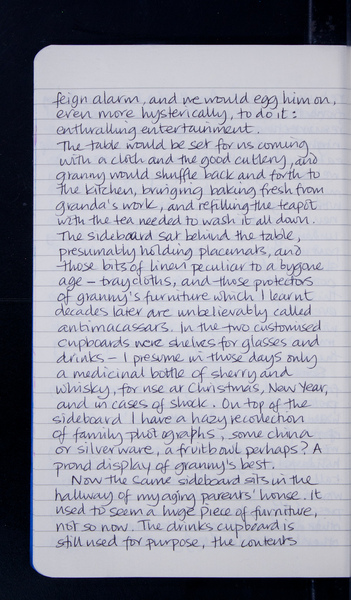 feign alarm, and we would egg him on,
even more hysterically, to do it :
enthralling entertainment.
The table would be set for us coming
with a cloth and the good cutlery, and
granny would shuffle back and forth to
the kitchen, bringing baking fresh from
granda's work, and refilling the teapot
with the tea needed to wash it all down.
The sideboard sat behind the table,
presumably holding placemats, and
those bits of linen peculiar to a bygone
age – traycloths, and those protectors
of granny's furniture which I learnt
decades later are unbelievably called
antimacassars. In the two customised
cupboards were shelves for glasses and
drinks – I presume in those days only
a medicinal bottle of sherry and
whisky, for use at Christmas, New Year,
and in cases of shock. On top of the
sideboard I have a hazy recollection
of family photographs, some china
or silverware, a fruitbowl perhaps? A
proud display of granny's best.
Now the same sideboard sits in the
hallway of my aging parents' house. It
used to seem a huge piece of furniture,
not so now. The drinks cupboard is
still used for purpose, the contents